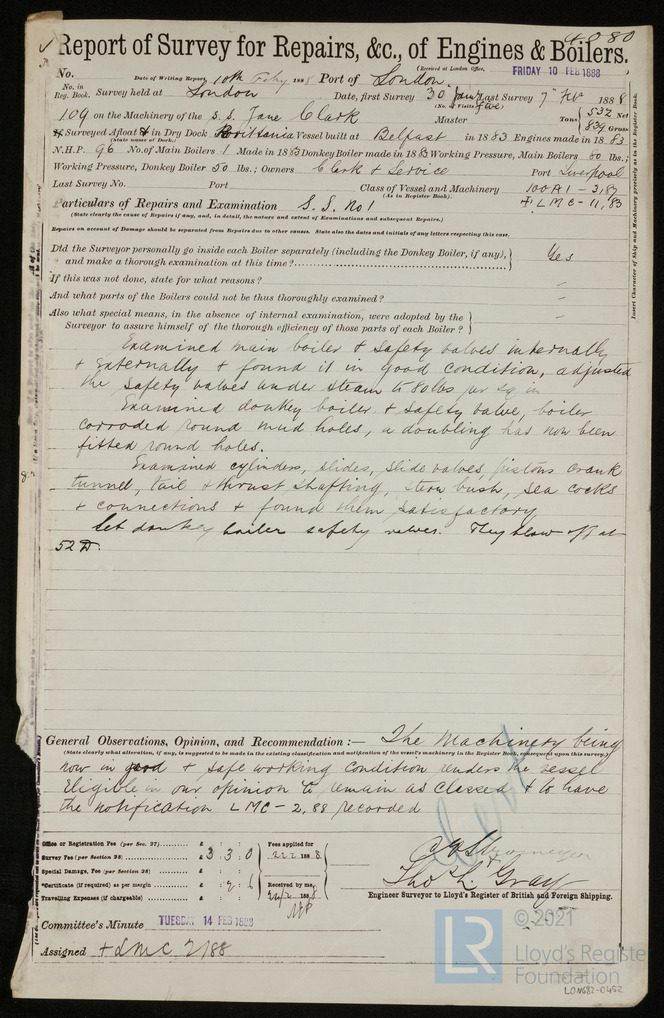 4080
Report of Survey for Repairs, &c., of Engines & Boilers.
(Received at London Office, FRIDAY 10 FEB 1888
No. Date of Writing Report 10th Feby 1888 Port of London
No. in Reg. Book. Survey held at London Date, first Survey 30 Jany Last Survey 7th Feb 1888
(No. of Visits five)
109 on the Machinery of the S.S. Jane Clark Master Tons 532 Net 839 Gross
Surveyed Afloat & in Dry Dock Brittania Vessel built at Belfast in 1883 Engines made in 1883
(State name of Dock.)
N.H.P. 96 No. of Main Boilers 1 Made in 1883 Donkey Boiler made in 1883 Working Pressure, Main Boilers 80 lbs.;
Working Pressure, Donkey Boiler 50 lbs.; Owners Clark & Service Port Liverpool
Last Survey No. Port Class of Vessel and Machinery 100A1 - 3,87
(As in Register Book).
+ LMC - 11,83
Particulars of Repairs and Examination S.S. No 1
(State clearly the cause of Repairs if any, and, in detail, the nature and extent of Examinations and subsequent Repairs.)
Repairs on account of Damage should be separated from Repairs due to other causes. State also the dates and initials of any letters respecting this case.
Insert Character of Ship and Machinery precisely as in the Register Book.
Did the Surveyor personally go inside each Boiler separately (including the Donkey Boiler, if any),
and make a thorough examination at this time? Yes
If this was not done, state for what reasons? –
And what parts of the Boilers could not be thus thoroughly examined? –
Also what special means, in the absence of internal examination, were adopted by the
Surveyor to assure himself of the thorough efficiency of those parts of each Boiler? –
Examined main boiler & safety valves internally
& externally & found it in good condition, adjusted
the safety valves under steam to 80 lbs per sq in
Examined donkey boiler & safety valve, boiler
corroded round mud holes, a doubling has now been
fitted round holes.
Examined cylinders, slides, slide valves, pistons crank
tunnel, tail & thrust shafting, stern bush, sea cocks
& connections & found them satisfactory
Set donkey boiler safety valves. They blow off at
52 lb.
General Observations, Opinion, and Recommendation :— The Machinery being
(State clearly what alteration, if any, is suggested to be made in the existing classification and notification of the vessel's machinery in the Register Book, consequent upon this survey.)
now in good & safe working condition renders the vessel
Eligible in our opinion to remain as classed & to have
the notification LMC - 2,88 recorded
Office or Registration Fee (per Sec. 27) £ : :
Survey Fee (per Section 28) £ 3 : 3 : 0
Special Damage, Fee (per Section 28) £ : :
*Certificate (if required) as per margin £ : 2 :
Travelling Expenses (if chargeable) £ : :
Fees applied for
1888
Received by me,
1888
Thos L Gray
Engineer Surveyor to Lloyd's Register of British and Foreign Shipping.
Committee's Minute TUESDAY 14 FEB 1888
Assigned + LMC 2/88
LR
© 2021
Lloyd's Register
Foundation
LON682-0452